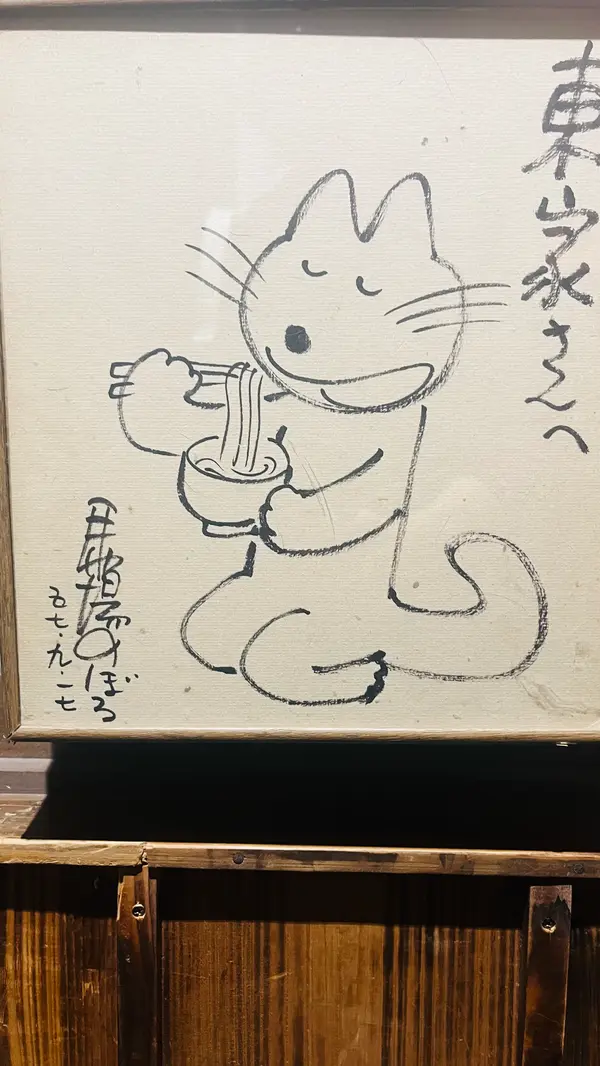 東家さんへ
馬場のぼる
五七・九・一七